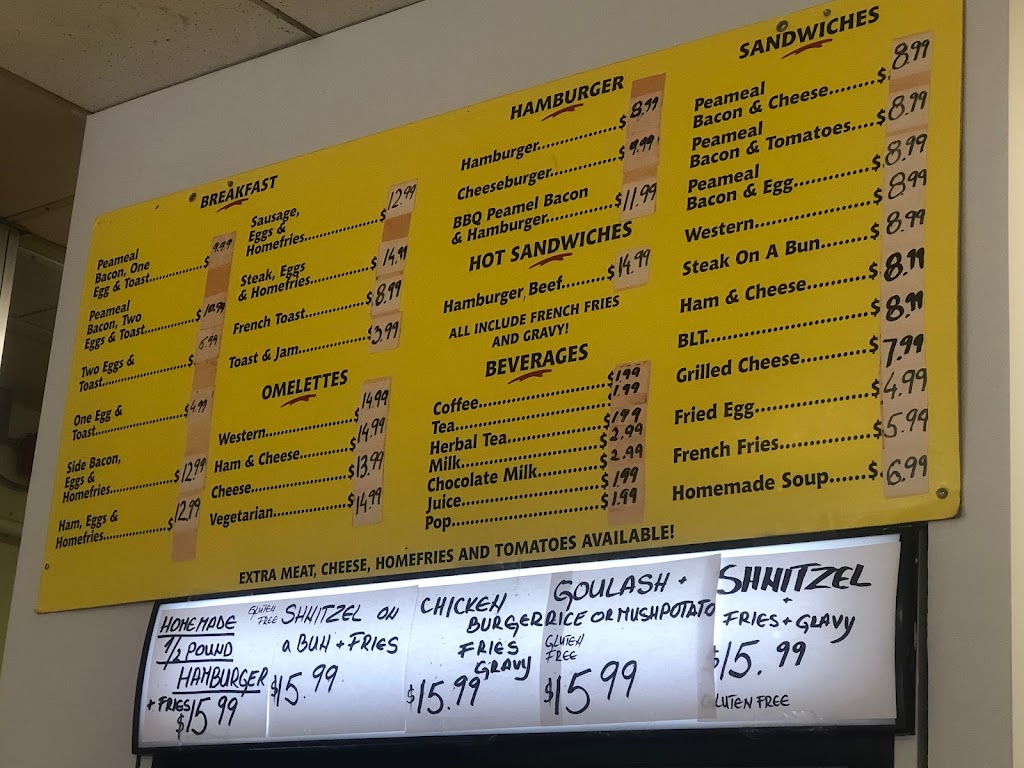 BREAKFAST
Peameal
Bacon, One
Egg & Toast..............$ 9.99
Peameal
Bacon, Two
Eggs & Toast.............$ 10.99
Two Eggs &
Toast......................$. 6.99
One Egg &
Toast......................$ 4.99
Side Bacon,
Eggs &
Homefries................$12.99
Ham, Eggs &
Homefries................$12.99
Sausage,
Eggs &
Homefries................$ 12.99
Steak, Eggs
& Homefries.............$ 14.99
French Toast.............$8.99
Toast & Jam..............$3.99
OMELETTES
Western....................$14.99
Ham & Cheese..........$14.99
Cheese.....................$13.99
Vegetarian................$14.99
HAMBURGER
Hamburger................$ 8.99
Cheeseburger............$ 9.99
BBQ Peamel Bacon
& Hamburger............$11.99
HOT SANDWICHES
Hamburger, Beef.......$14.99
ALL INCLUDE FRENCH FRIES
AND GRAVY!
BEVERAGES
Coffee.......................$1.99
Tea...........................1.99
Herbal Tea.................$1.99
Milk..........................$2.99
Chocolate Milk...........$2.99
Juice.........................$1.99
Pop...........................$1.99
SANDWICHES
Peameal
Bacon & Cheese.......$. 8.99
Peameal
Bacon & Tomatoes....$8.99
Peameal
Bacon & Egg.............$.8.99
Western....................$8.99
Steak On A Bun........$8.99
Ham & Cheese..........$8.99
BLT...........................$8.99
Grilled Cheese...........$7.99
Fried Egg..................$4.99
French Fries..............$5.99
Homemade Soup......$.6.99
EXTRA MEAT, CHEESE, HOMEFRIES AND TOMATOES AVAILABLE!
HOMEMADE
1/2 POUND
HAMBURGER
+ FRIES
$15.99
GLUTEN
FREE
SHNITZEL ON
a BUN + FRIES
$15.99
CHICKEN
BURGER
FRIES
GRAVY
$15.99
GOULASH +
RICE OR MUSHPOTATO
GLUTEN
FREE
$15.99
SHNITZEL
+
FRIES + GRAVY
$15.99
GLUTEN FREE